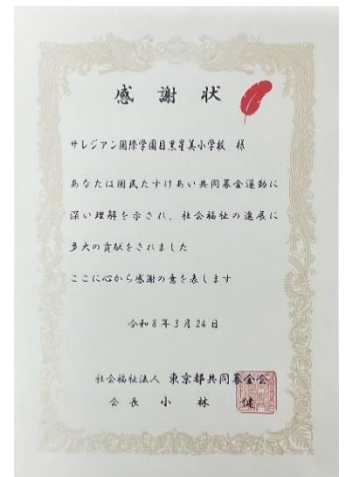 感謝状
サレジアン国際学園目黒星美小学校 様
あなたは国民たすけあい共同募金運動に
深い理解を示され、社会福祉の進展に
多大の貢献をされました
ここに心から感謝の意を表します
令和8年3月24日
社会福祉法人 東京都共同募金会
会長 小林 健